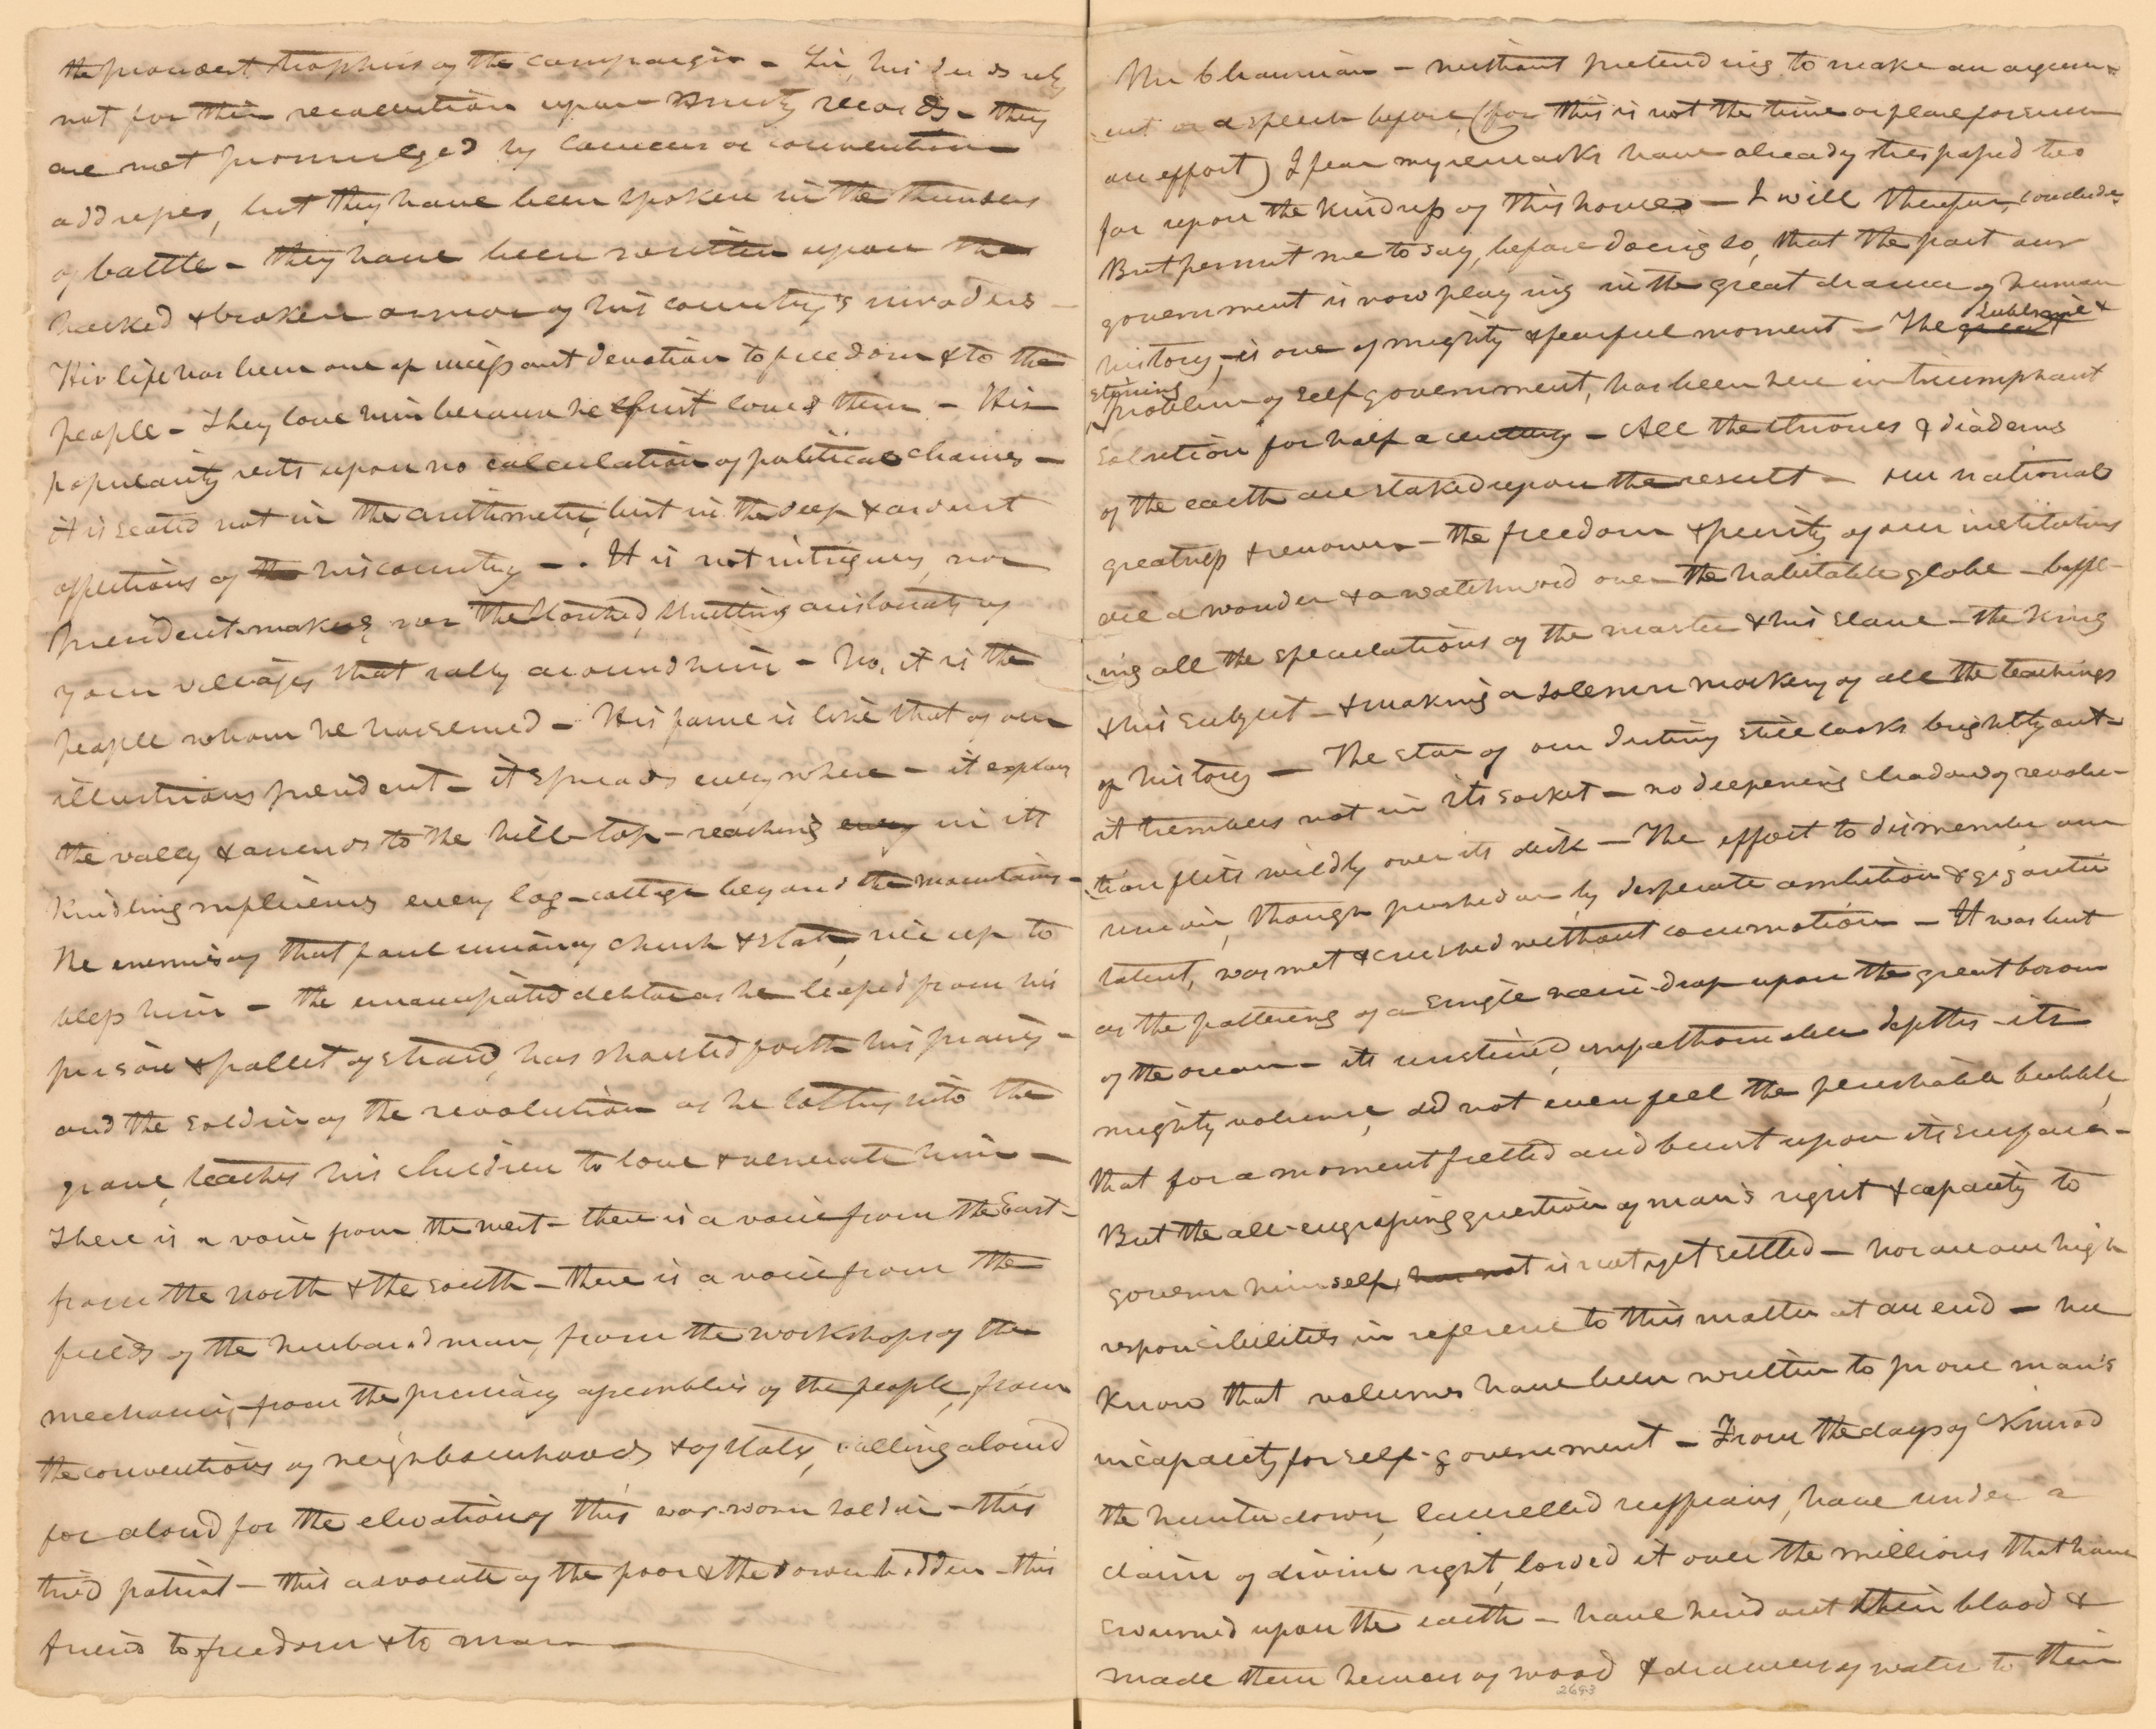 the proudest trophies of the campaign – Sir, his deeds rely
not for their recollection upon musty records – they
are not promulged by caucus or convention
addresses, but they have been spoken in the thunders
of battle – they have been written upon the
hacked & broken armor of his country's invaders –
His life has been one of incessant devotion to freedom & to the
people – They love him because he first loved them – His
popularity rests upon no calculation of political chances –
it is seated not in the arithmetic, but in the deep & ardent
affections of the his country – . It is not intriguers, nor
President-makers, nor the starched, strutting aristocrats of
your villages that rally around him – No, it is the
people whom he has served – His fame is like that of our
illustrious president – it spreads every where – it explores
the valley & ascends to the hill-top – reaching every in its
kindling influences every log-cottage beyond the mountains –
The enemies of that foul union of church & state, rise up to
bless him – the emancipated debtor as he leaped from his
prison & pallet of straw, has shouted forth his praises –
and the soldier of the revolution as he totters into the
grave, teaches his children to love & venerate him –
There is a voice from the west – there is a voice from the East –
from the north & the south – there is a voice from the
fields of the husbandman, from the workshops of the
mechanics, from the primary assemblies of the people, from
the conventions of neighbourhoods & of states, calling aloud
for aloud for the elevation of this war-worn soldier – this
tried patriot – this advocate of the poor & the downtrodden – this
friend to freedom & to man –
Mr Chairman – without pretending to make an argum-
ent or a speech before, (for this is not the time or place for such
an effort) I fear my remarks have already trespassed too
far upon the kindness of this house – I will therefore, conclude,
But permit me to say, before doing so, that the part our
government is now playing in the great drama of human
history, is one of mighty & fearful moment – The great sublime &
stirring problem of self government, has been here in triumphant
solution for half a century – All the thrones & diadems
of the earth are staked upon the result – our national
greatness & renown – the freedom & purity of our institutions
are a wonder & a watchword over the habitable globe – baffl-
ing all the speculations of the master & his slave – the King
& his subject – & making a solemn mockery of all the teachings
of history – The star of our destiny still looks brightly out –
it trembles not in its socket – no deepening shadow of revolu-
tion flits wildly over its disk – The effort to dismember our
union, though pushed on by desperate ambition & gigantic
talent, was met & crushed without commotion – It was but
as the pattering of a single rain-drop upon the great bosom
of the ocean – its unstirred, unfathomable depths – its
mighty volume, did not even feel the perishable bubble,
that for a moment fretted and burst upon its surface –
But the all-engrossing question of man's right & capacity to
govern himself, has not is not yet settled – nor are our high
responsibilities in reference to this matter at an end – We
know that volumes have been written to prove man's
incapacity for self-government – From the days of Nimrod
the hunter down, laurelled ruffians, have under a
claim of divine right, lorded it over the millions that have
swarmed upon the earth – have hired out their blood &
made them hewers of wood & drawers of water to their
2693